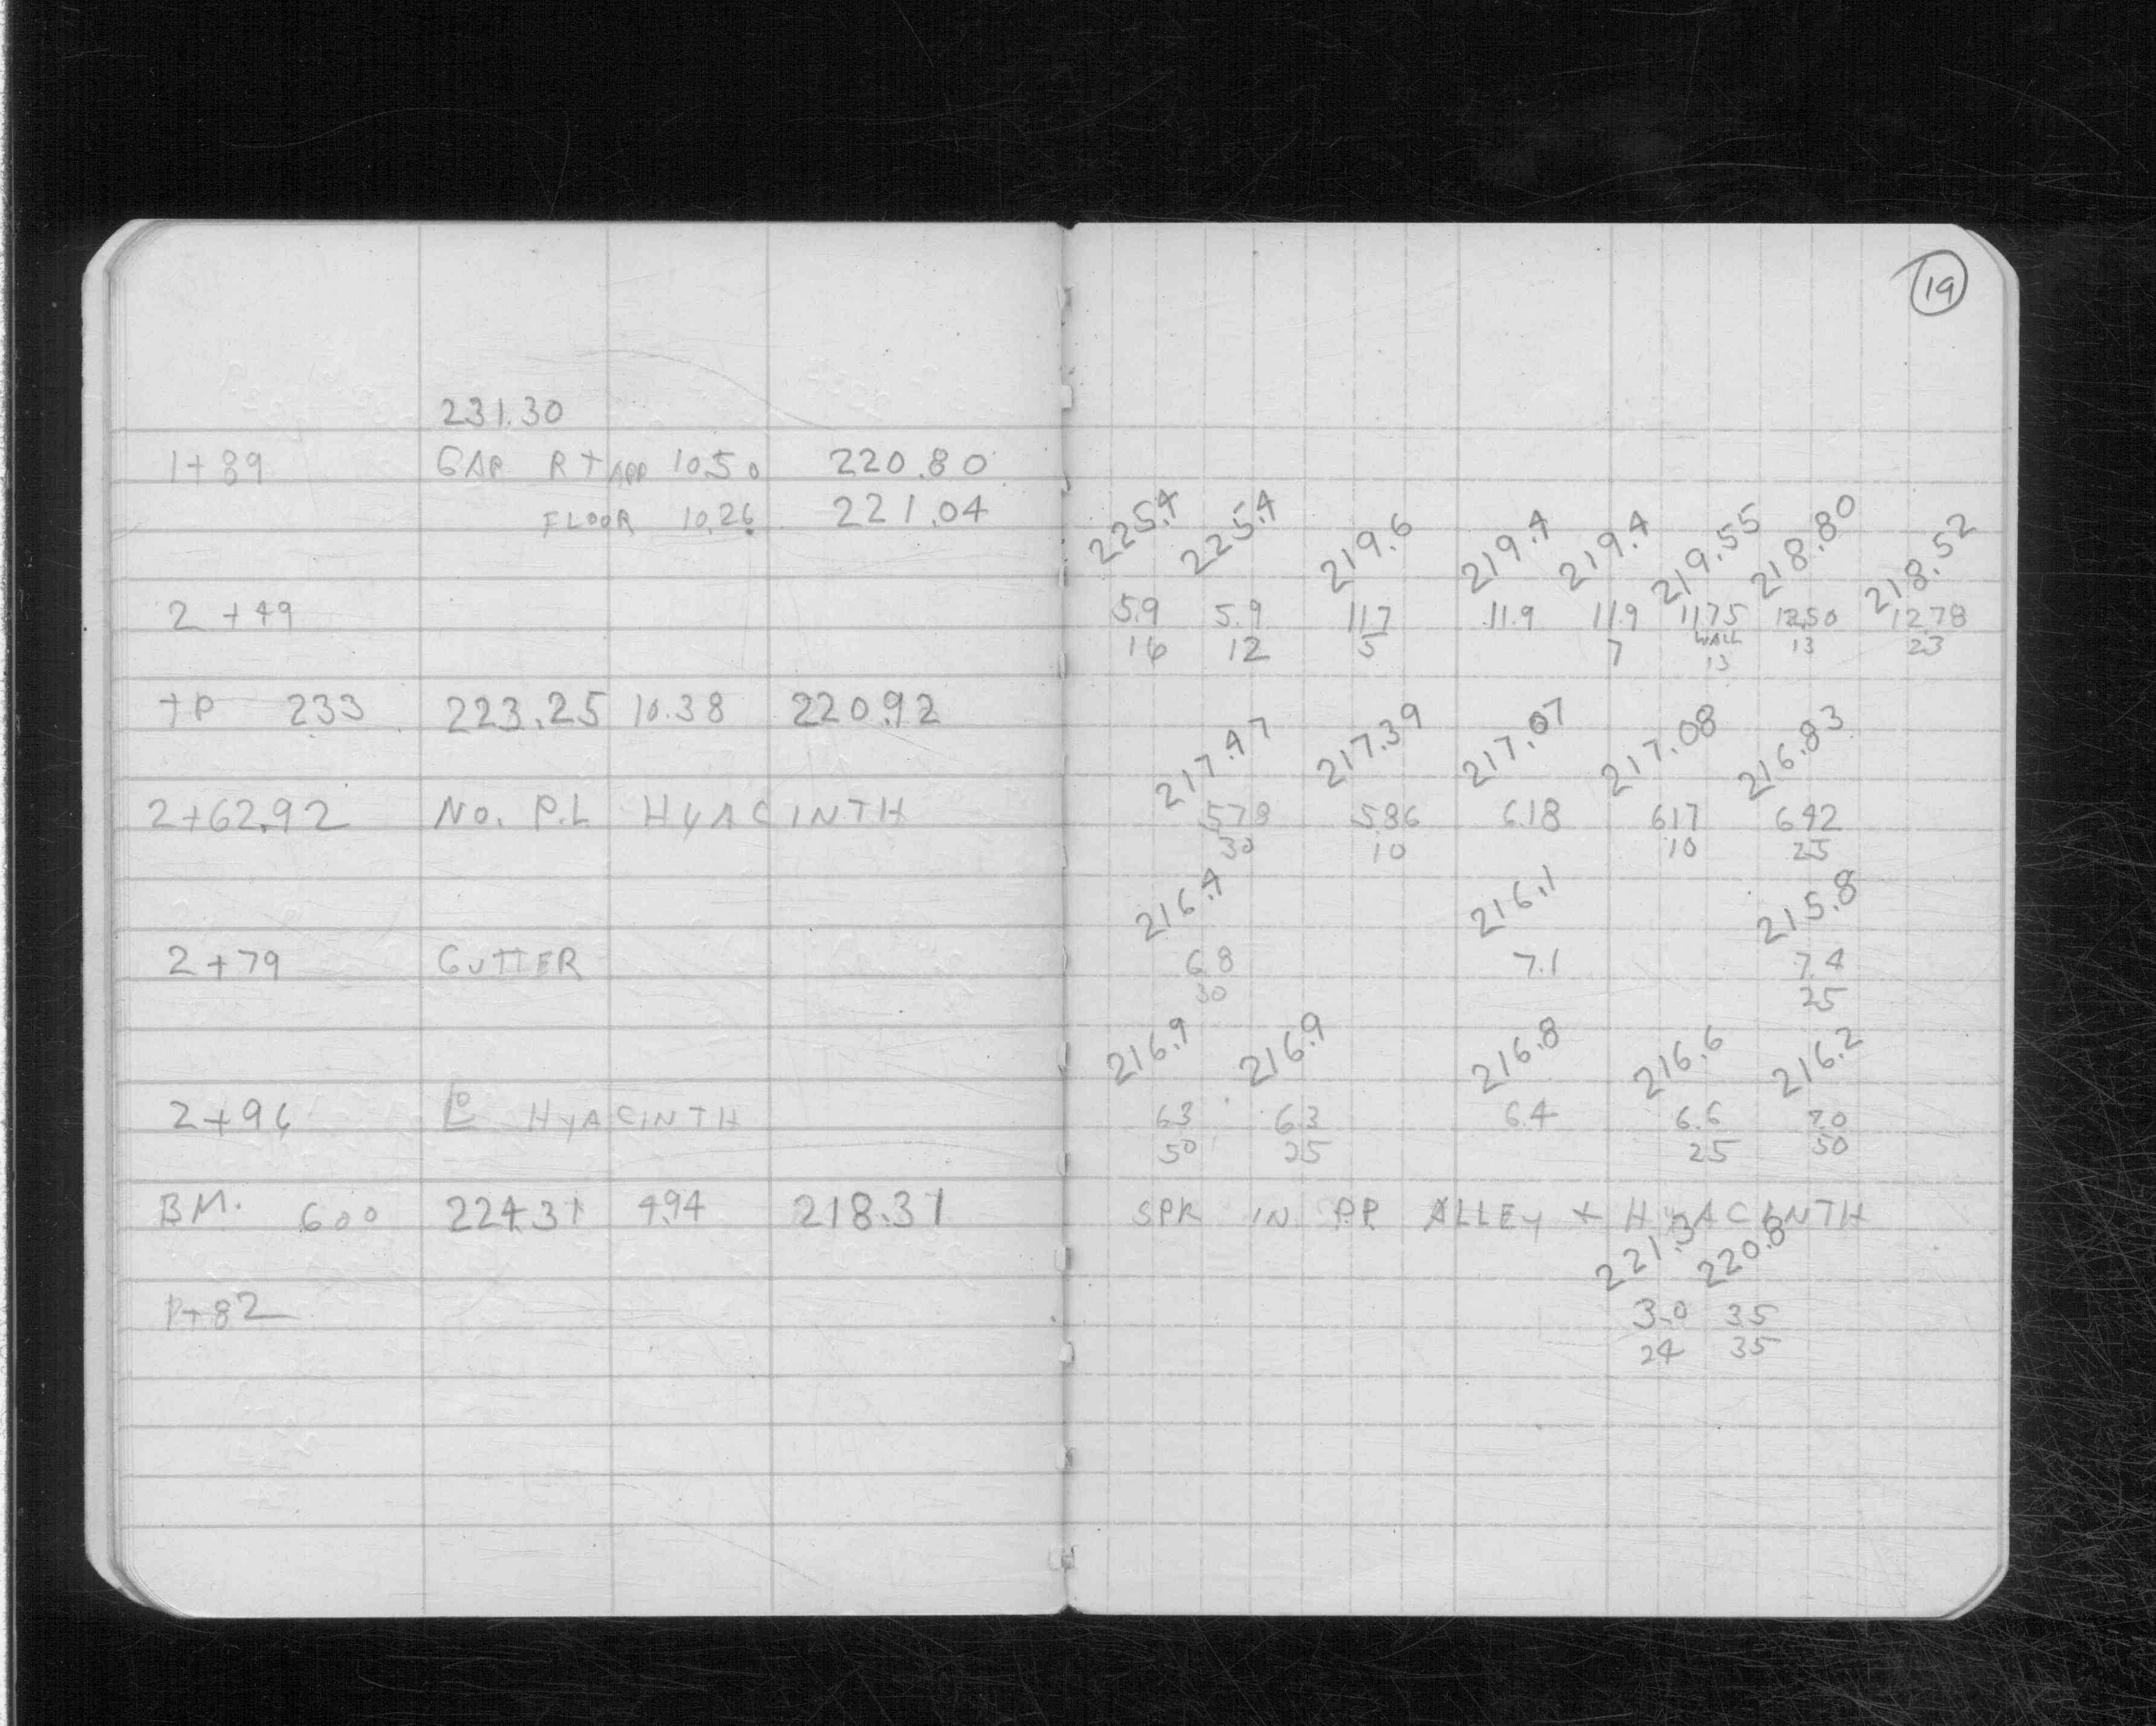 19
231.30
1+89 GAR RT APP 10.50 220.80
FLOOR 10.26 221.04
225.4 225.4 219.6 219.4 219.4 219.55 218.80 218.52
2+49 5.9 5.9 11.7 11.9 11.9 11.75 12.50 12.78
16 12 5 7 WALL 13 23
13
TP 2.33 223.25 10.38 220.92
217.47 217.39 217.07 217.08 216.83
2+62.92 No. P.L HYACINTH 5.78 5.86 6.18 6.17 6.42
30 10 10 25
216.4 216.1 215.8
2+79 GUTTER 6.8 7.1 7.4
30 25
216.9 216.9 216.8 216.6 216.2
2+96 ℄ HYACINTH 6.3 6.3 6.4 6.6 7.0
50 25 25 50
BM. 6.00 224.31 4.94 218.31 SPK IN P.P. ALLEY + HYACINTH
221.3 220.8
1+82 3.0 3.5
24 35